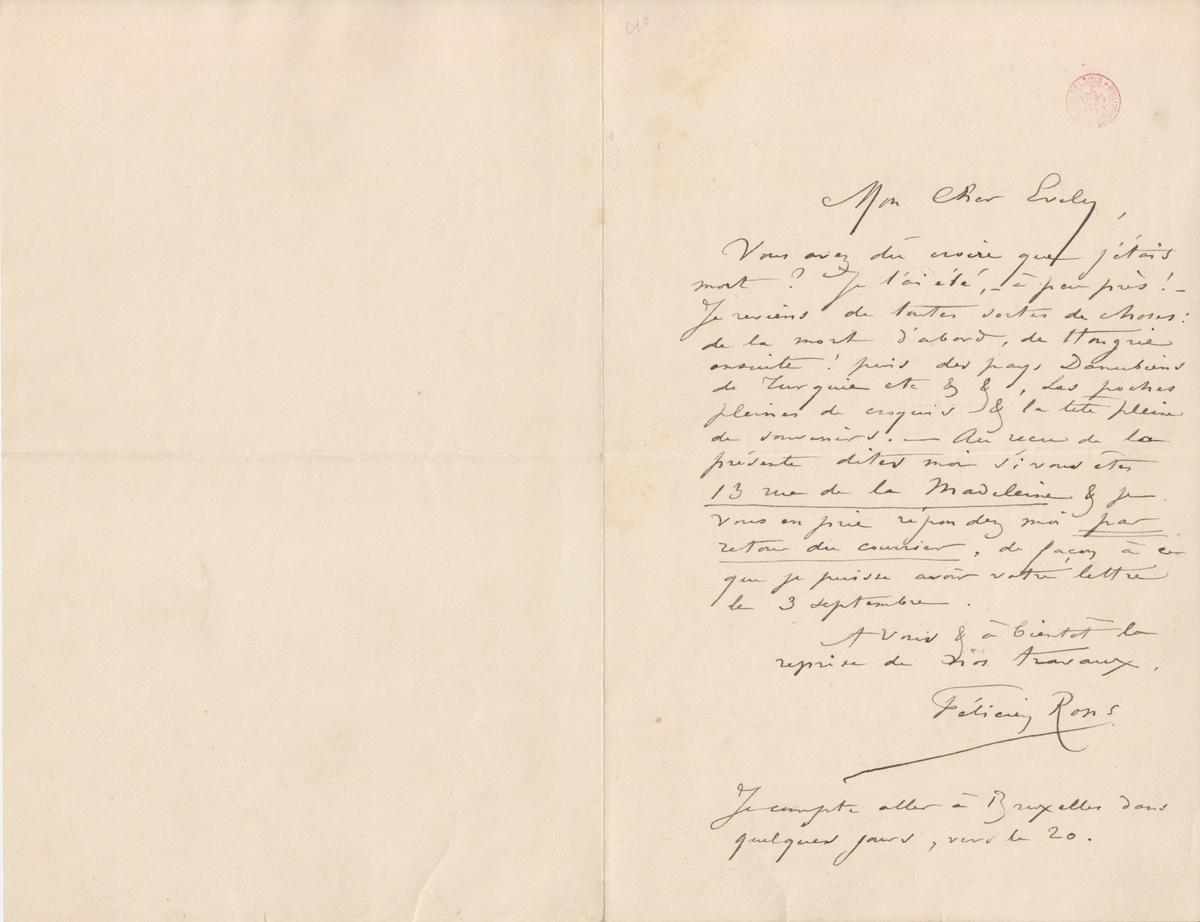 Mon Cher Evely,
Vous avez dû croire que j'étais
mort ? Je l'ai été, – à peu près ! –
Je reviens de toutes sortes de choses :
de la mort d'abord, de Hongrie
ensuite ! puis des pays Danubiens
de Turquie etc & & , Les poches
pleines de croquis & la tête pleine
de souvenirs. — Au reçu de la
présente dites moi si vous êtes
13 rue de la Madeleine & je
vous en prie répondez moi par
retour du courrier, de façon à ce
que je puisse avoir votre lettre
le 3 septembre .
A Vous & à bientôt la
reprise de nos travaux.
Félicien Rops
Je compte aller à Bruxelles dans
quelques jours, vers le 20.